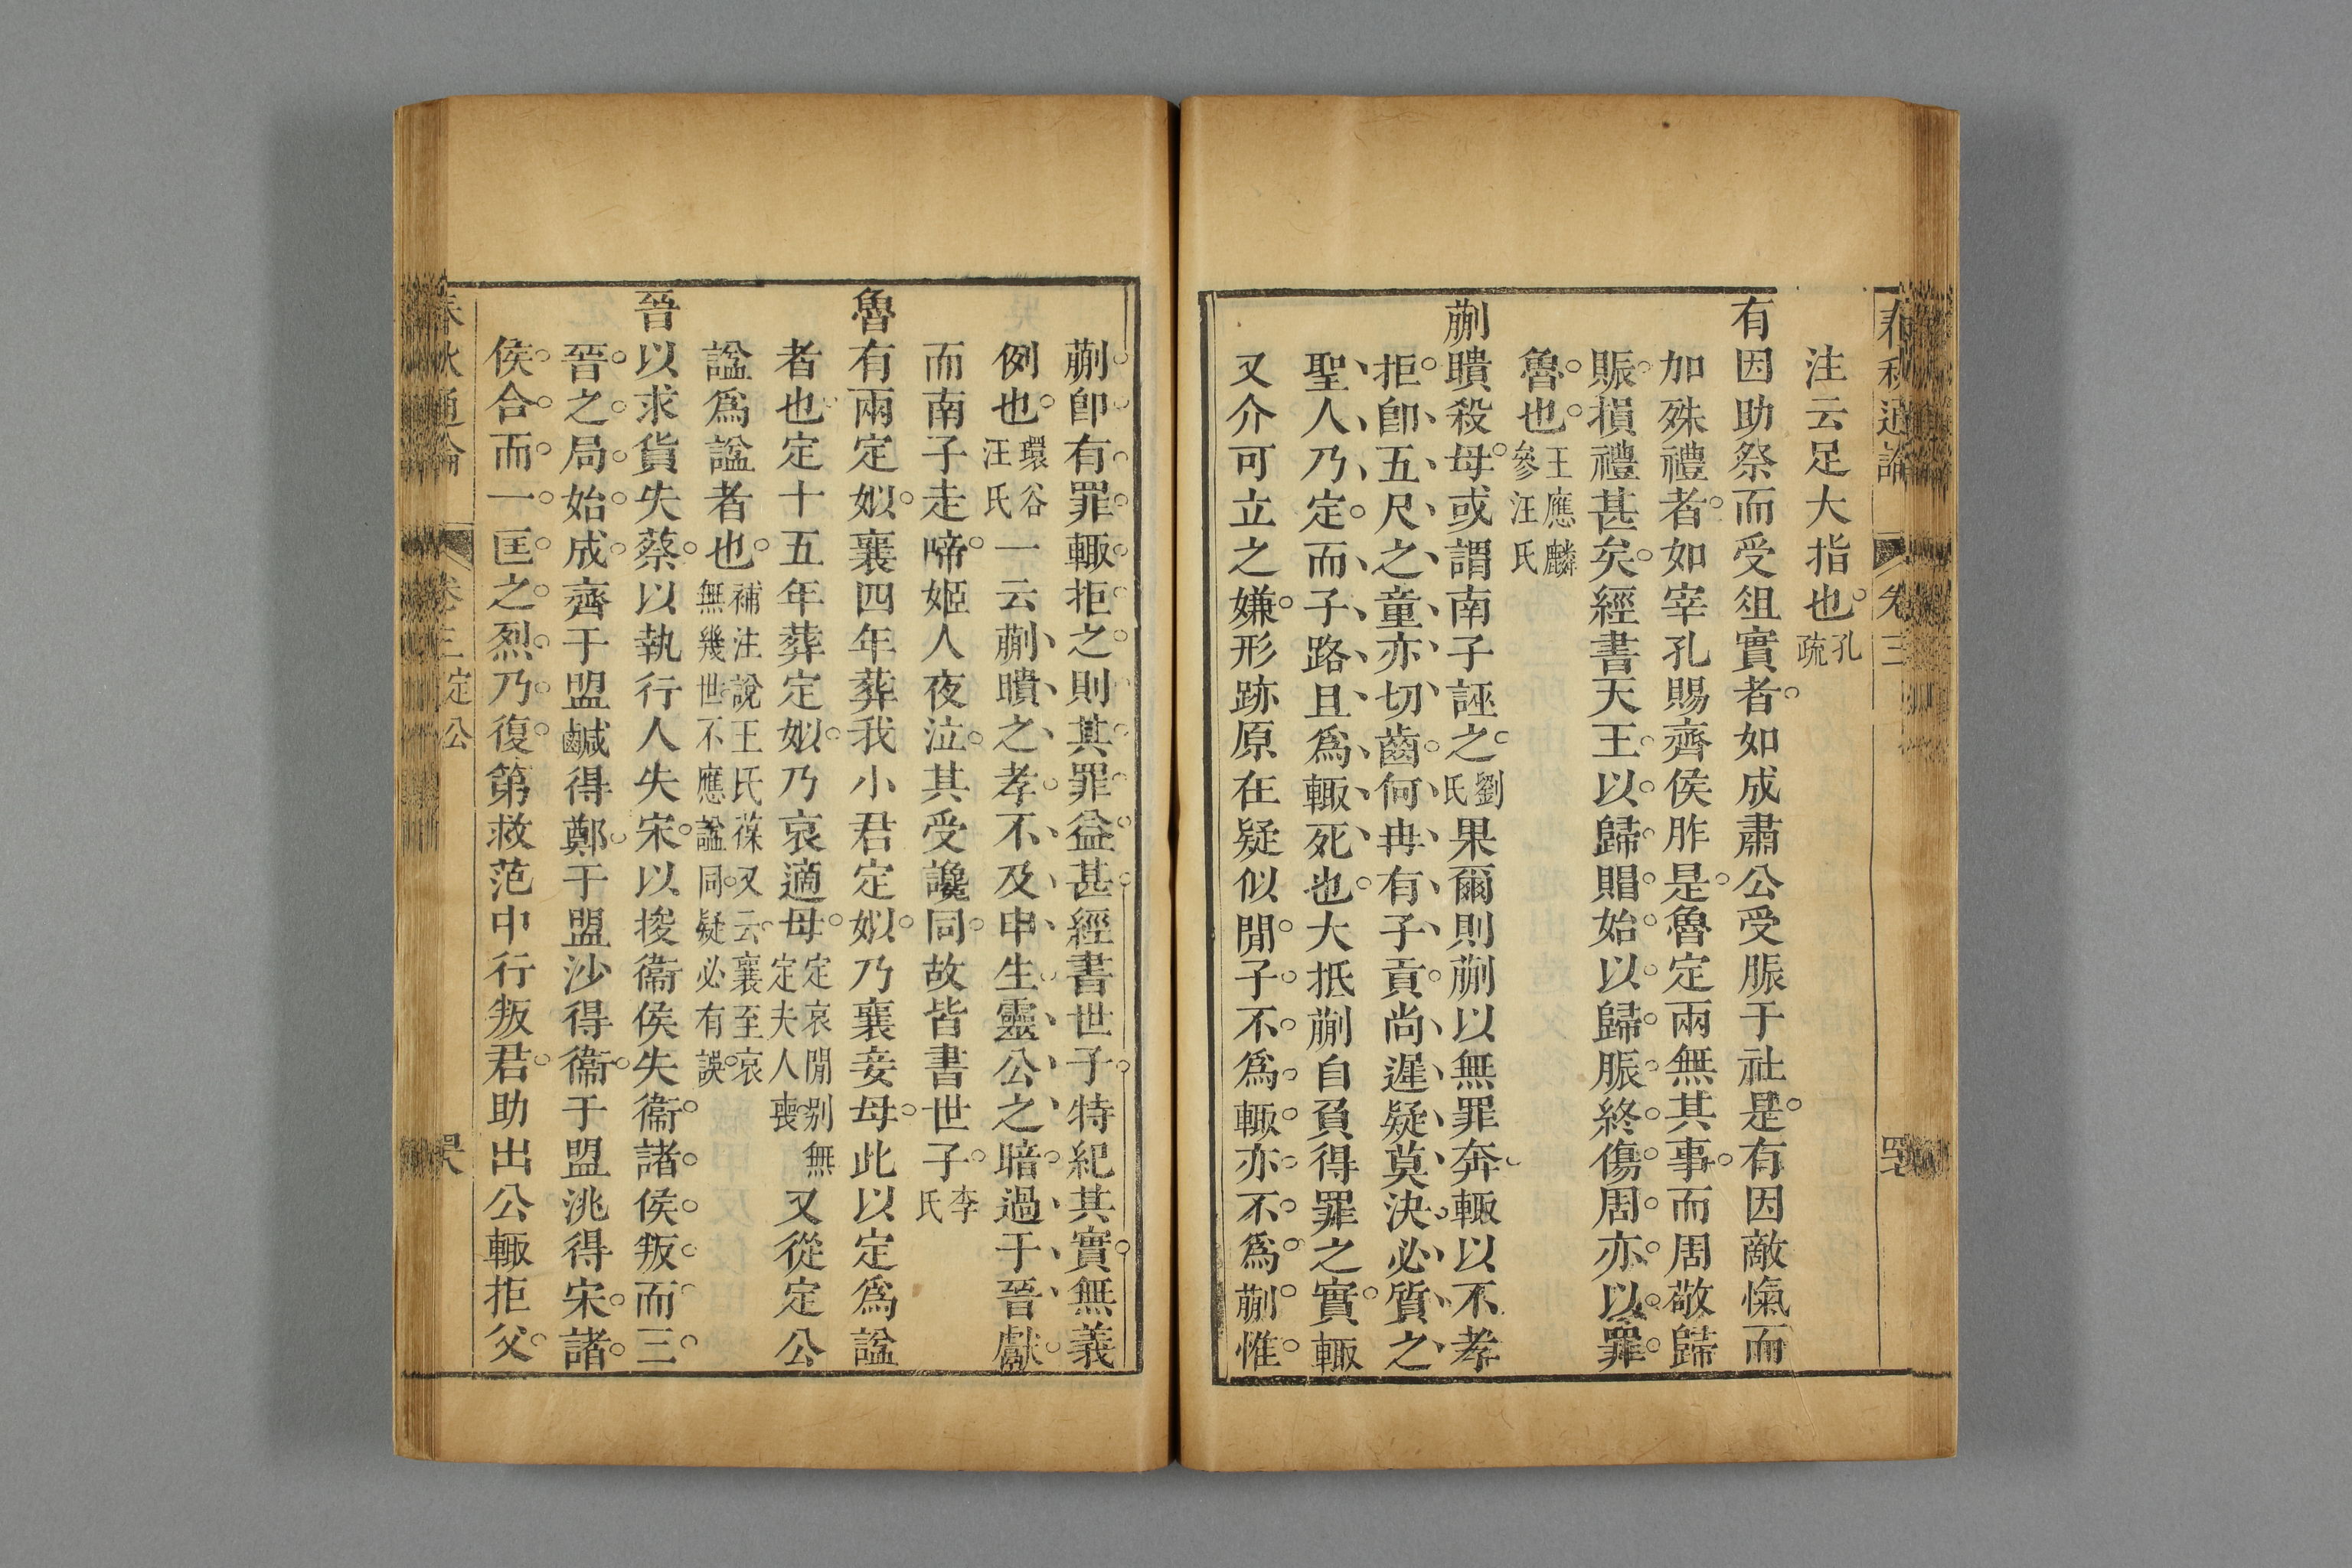 春秋通論
卷三
注云足大指也孔疏
有因助祭而受俎實者如成肅公受脤于社是有因敵愾而
加殊禮者如宰孔賜齊侯胙是魯定兩無其事而周敬歸
賑損禮甚矣經書天王以歸賵始以歸脤終傷周亦以罪
魯也王應麟參汪氏
蒯聵殺母或謂南子誣之劉氏果爾則蒯以無罪奔輒以不孝
拒卽五尺之童亦切齒何冉有子貢尚遲疑莫決必質之
聖人乃定而子路且爲輒死也大抵蒯自負得罪之實輒
又介可立之嫌形跡原在疑似閒子不爲輒亦不爲蒯惟
蒯卽有罪輒拒之則其罪益甚經書世子特紀其實無義
例也環谷汪氏一云蒯聵之孝不及申生靈公之暗過于晉獻
而南子走啼姬人夜泣其受讒同故皆書世子李氏
魯有兩定姒襄四年葬我小君定姒乃襄妾母此以定爲諡
者也定十五年葬定姒乃哀適母定哀閒别無定夫人喪又從定公
諡爲諡者也補注說王氏葆又云襄至哀無幾世不應諡同疑必有誤
晉以求貨失蔡以執行人失宋以捘衞侯失衞諸侯叛而三
晉之局始成齊于盟鹹得鄭于盟沙得衞于盟洮得宋諸
侯合而一匡之烈乃復第救范中行叛君助出公輒拒父
春秋通論
卷三 定公